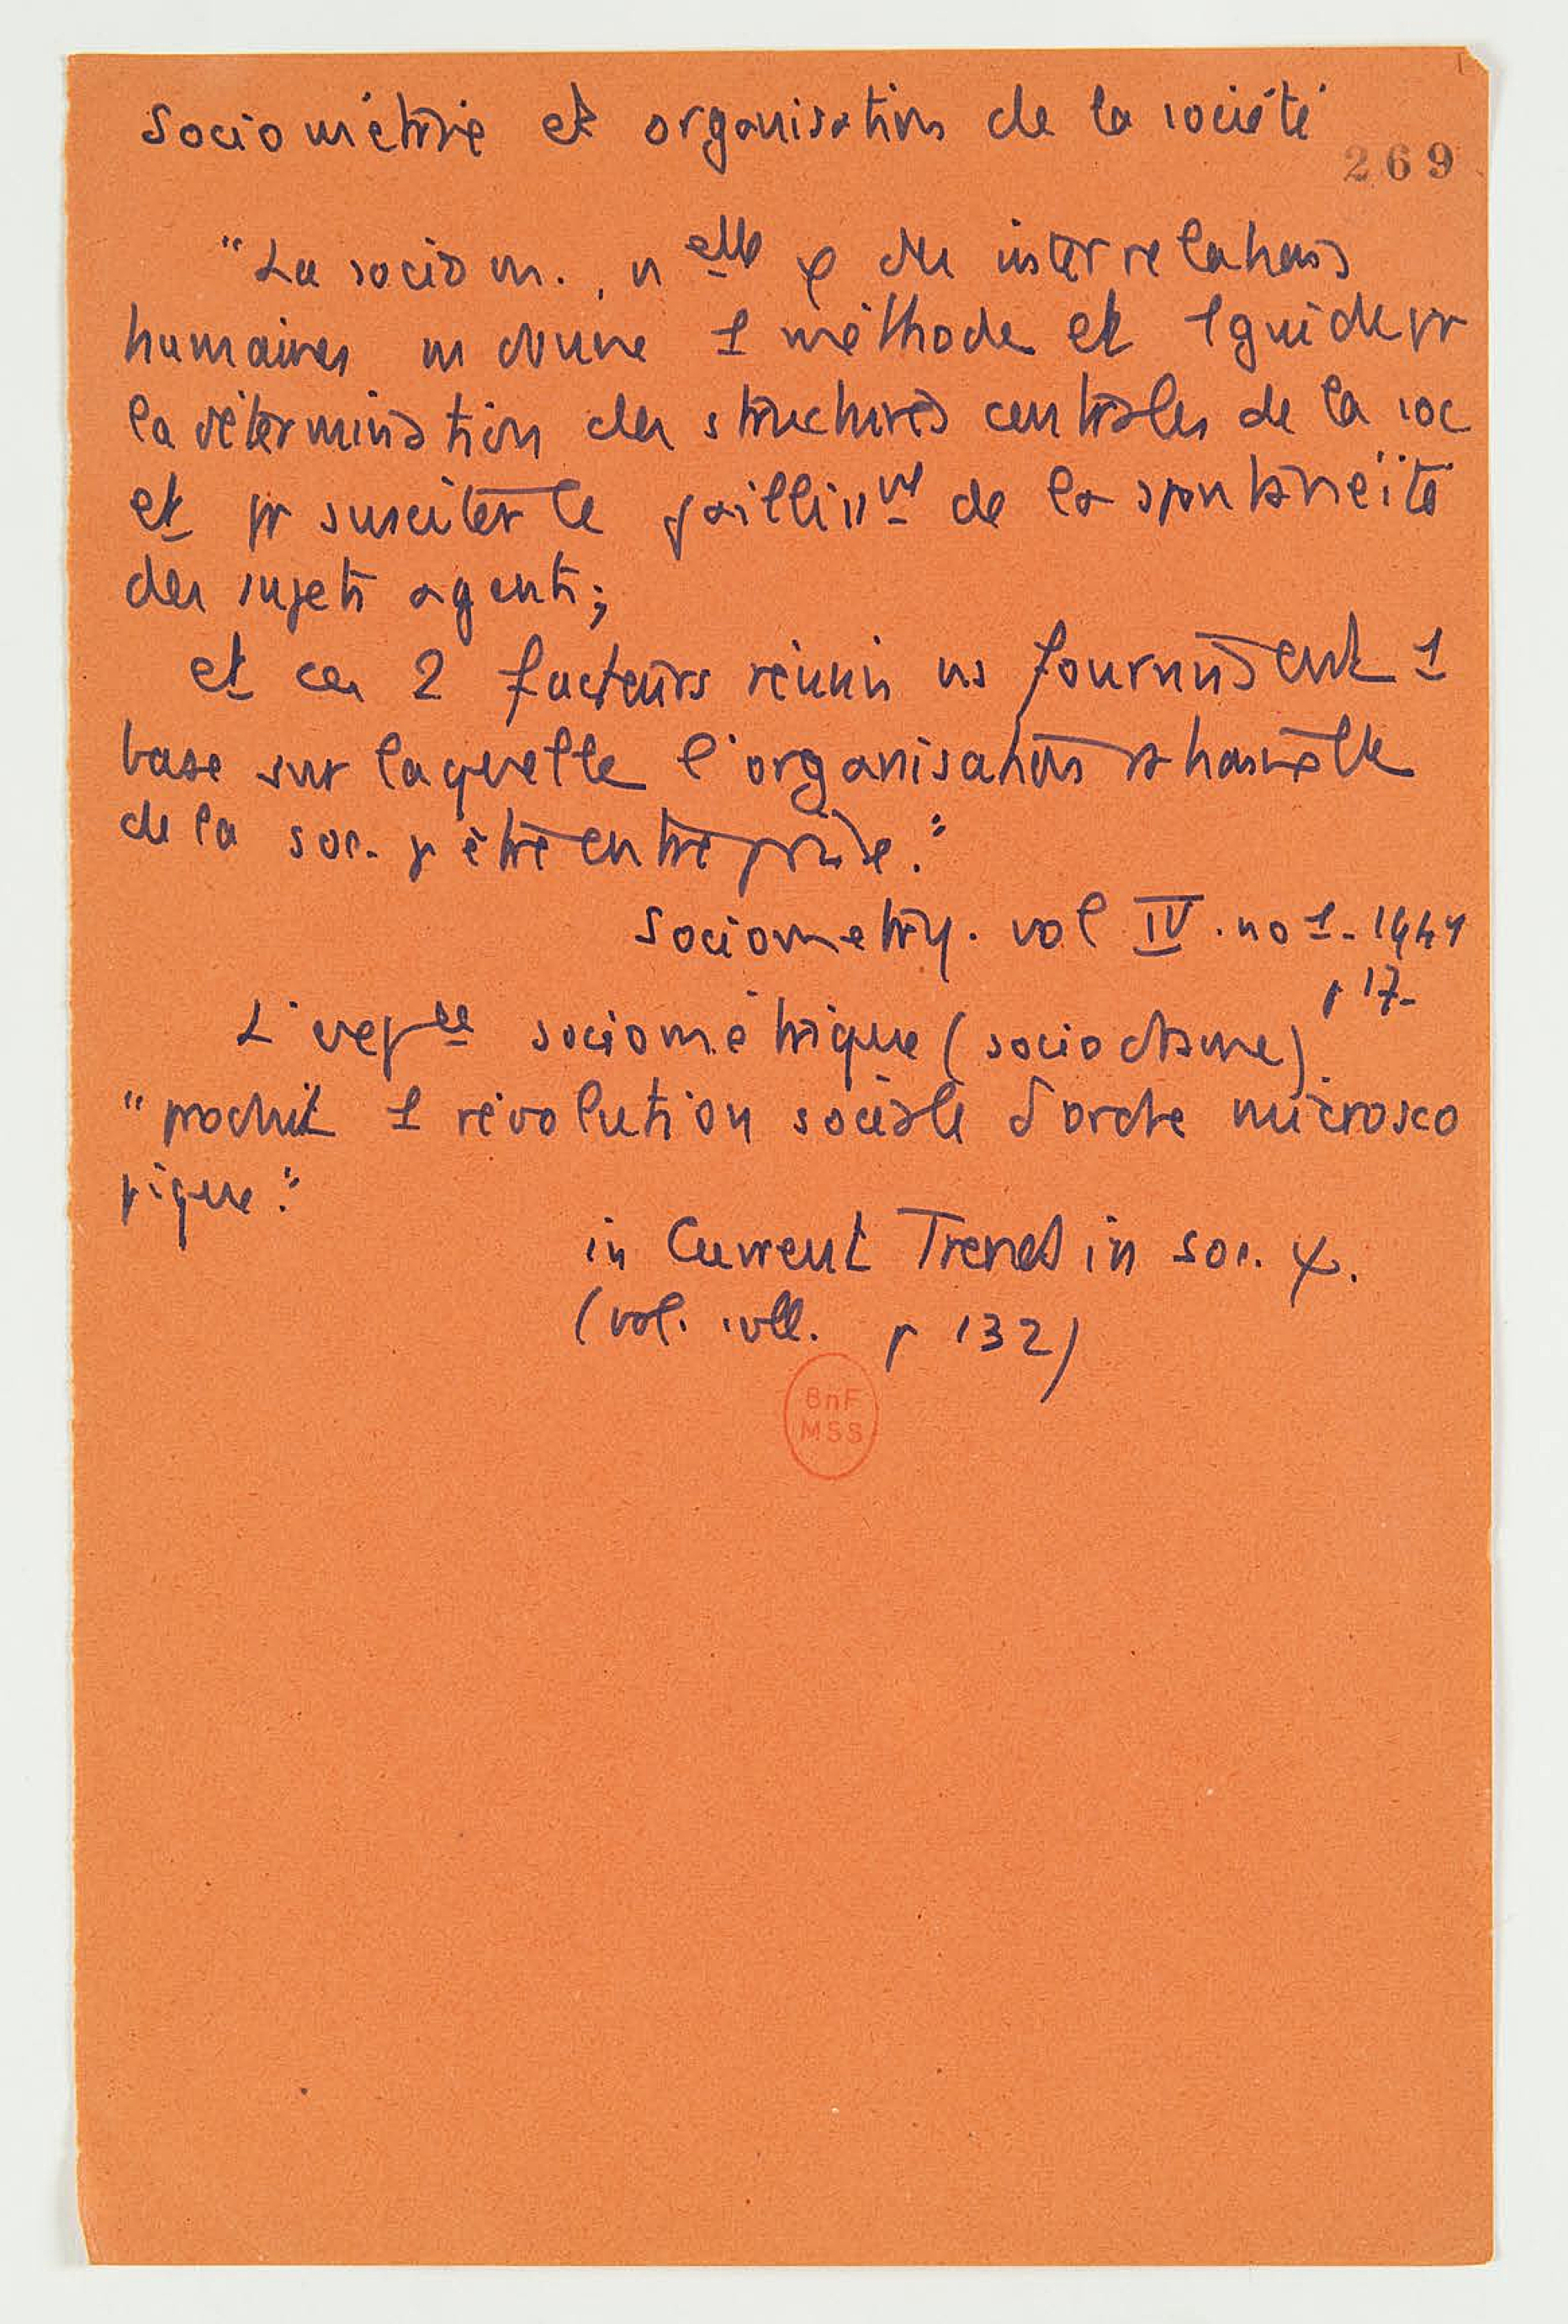 Sociométrie et organisation de la société
269
"La sociom., n elle φ des interrelations
humaines ns donne 1 méthode et 1 guide pr
la détermination des structures centrales de la soc
et pr susciter le jailliss nt de la spontanéité
des sujets agents;
et ces 2 facteurs réunis ns fournissent 1
base sur laquelle l'organisation rationnelle
de la soc. p être entreprise."
Sociometry. vol IV. no 1. 1941
p 17-
L'exp ce sociométrique (sociodrame).
"produit 1 révolution sociale d'ordre microsco
pique."
in Current Trends in soc. ψ.
(vol. coll. p 132)
BnF
MSS